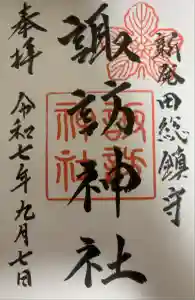 新発田総鎮守
諏訪神社
諏訪神社
奉拝
令和七年九月七日